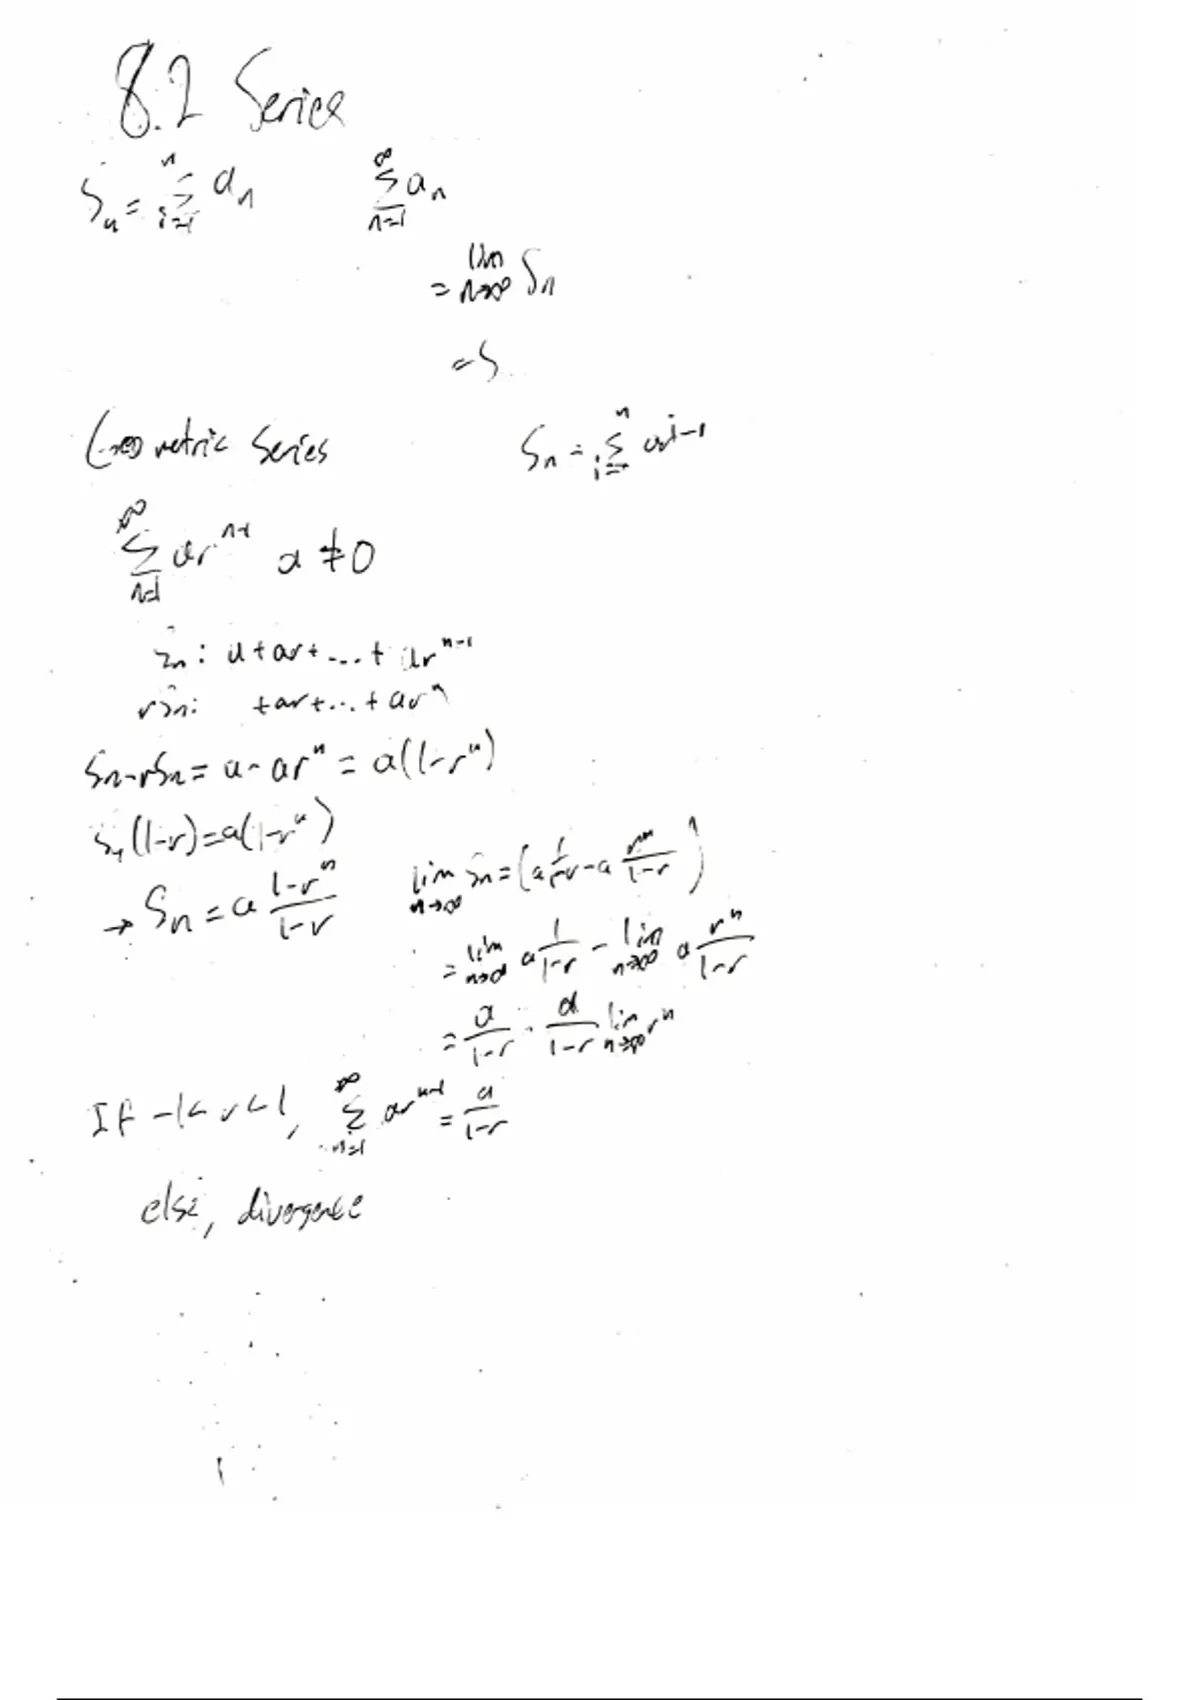 8.2 Series
Sₙ = ∑_{i=1}^{n} aₙ    ∑_{n=1}^{∞} aₙ
= lim_{n→∞} Sₙ
= S
Geometric Series    Sₙ = ∑_{i=}^{n} ar^{i-1}
∑_{n=1}^{∞} ar^{n-1}  a ≠ 0
Sₙ: a + ar + ... + ar^{n-1}
rSₙ: + ar + ... + ar^n
Sₙ - rSₙ = a - ar^n = a(1-r^n)
Sₙ(1-r) = a(1-r^n)
→ Sₙ = a (1-r^n)/(1-r)    lim_{n→∞} Sₙ = (a 1/(1-r) - a r^n/(1-r))
= lim_{n→∞} a 1/(1-r) - lim_{n→∞} a r^n/(1-r)
= a/(1-r) - a/(1-r) lim_{n→∞} r^n
If -1 < r < 1, ∑_{n=1}^{∞} ar^{n-1} = a/(1-r)
else, divergence